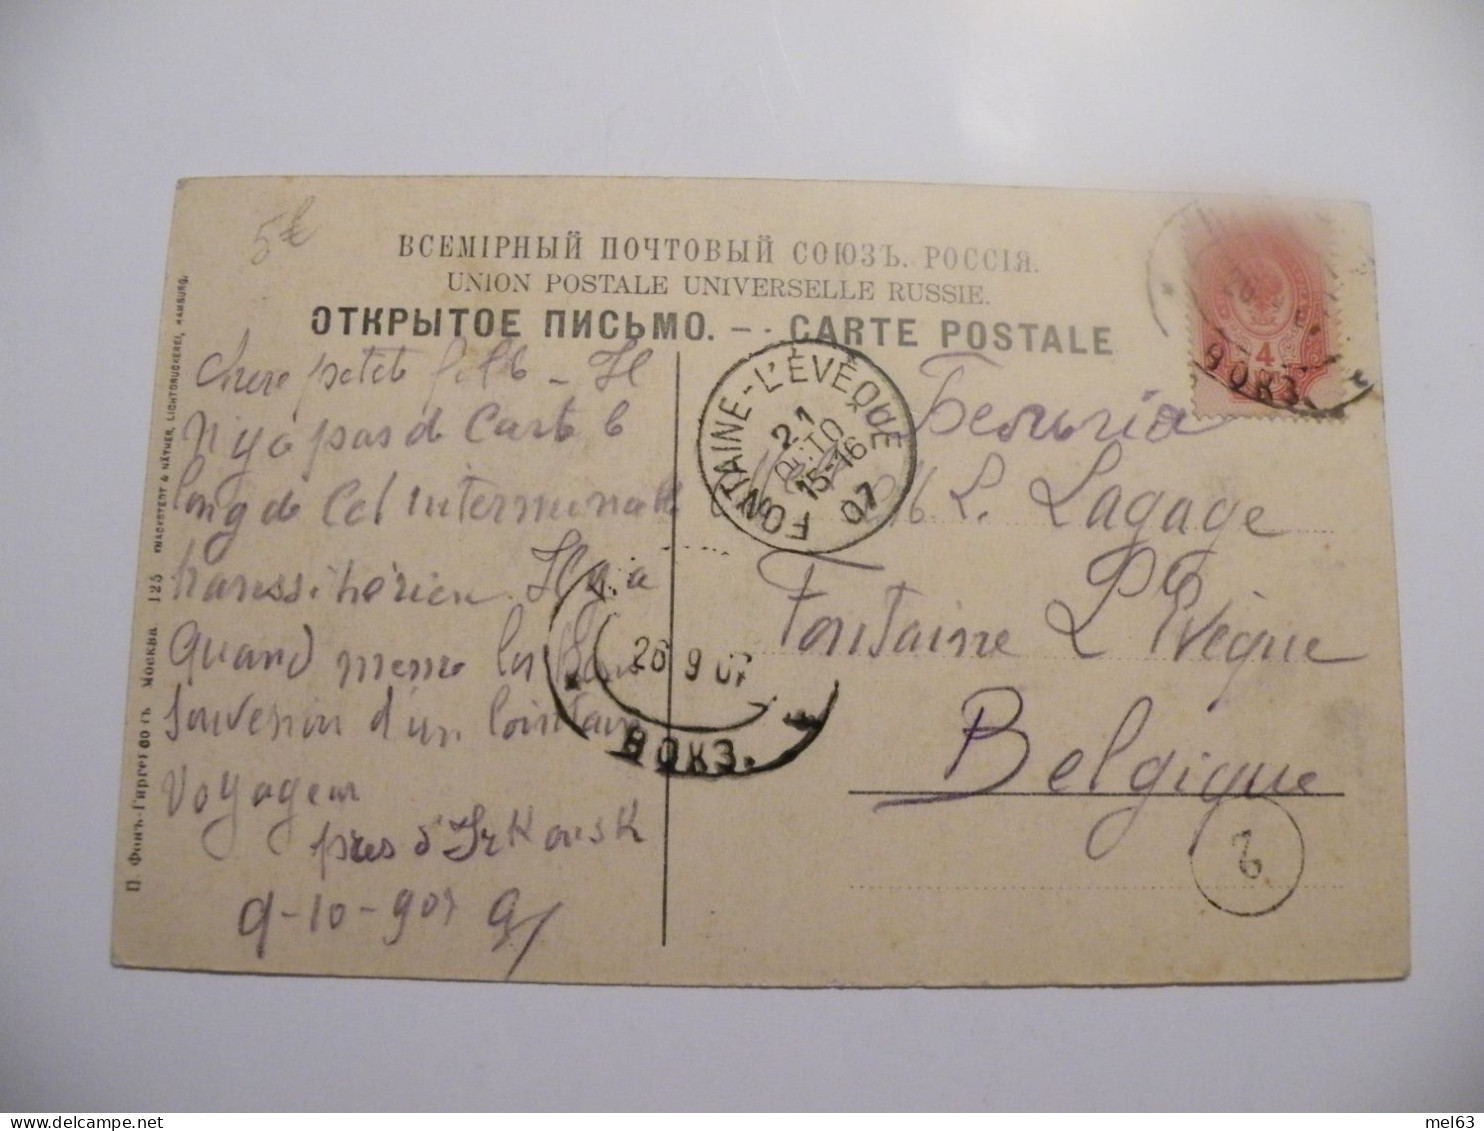 5€
ВСЕМІРНЫЙ ПОЧТОВЫЙ СОЮЗЪ. РОССІЯ.
UNION POSTALE UNIVERSELLE RUSSIE.
ОТКРЫТОЕ ПИСЬМО. — CARTE POSTALE
chere petite fille - Il
n'y a pas de Carte le
long de Cet interminable
transsibérien. Il y a
Quand meme un bon
Souvenir d'un lointain
Voyageur
pres d'Irkoursk
9-10-907
Бельгія
L. Lagage
Fontaine L'Evèque
Belgique
FONTAINE-L'ÉVÊQUE
21
OCTO
15-16
07
26 9 07
ВОКЗ.
4
26
ВОКЗ.
2
П. Фонъ-Гиргенсонъ Москва. 125 KNACKSTEDT & NÄTHER, LICHTDRUCKEREI, HAMBURG.
mel63